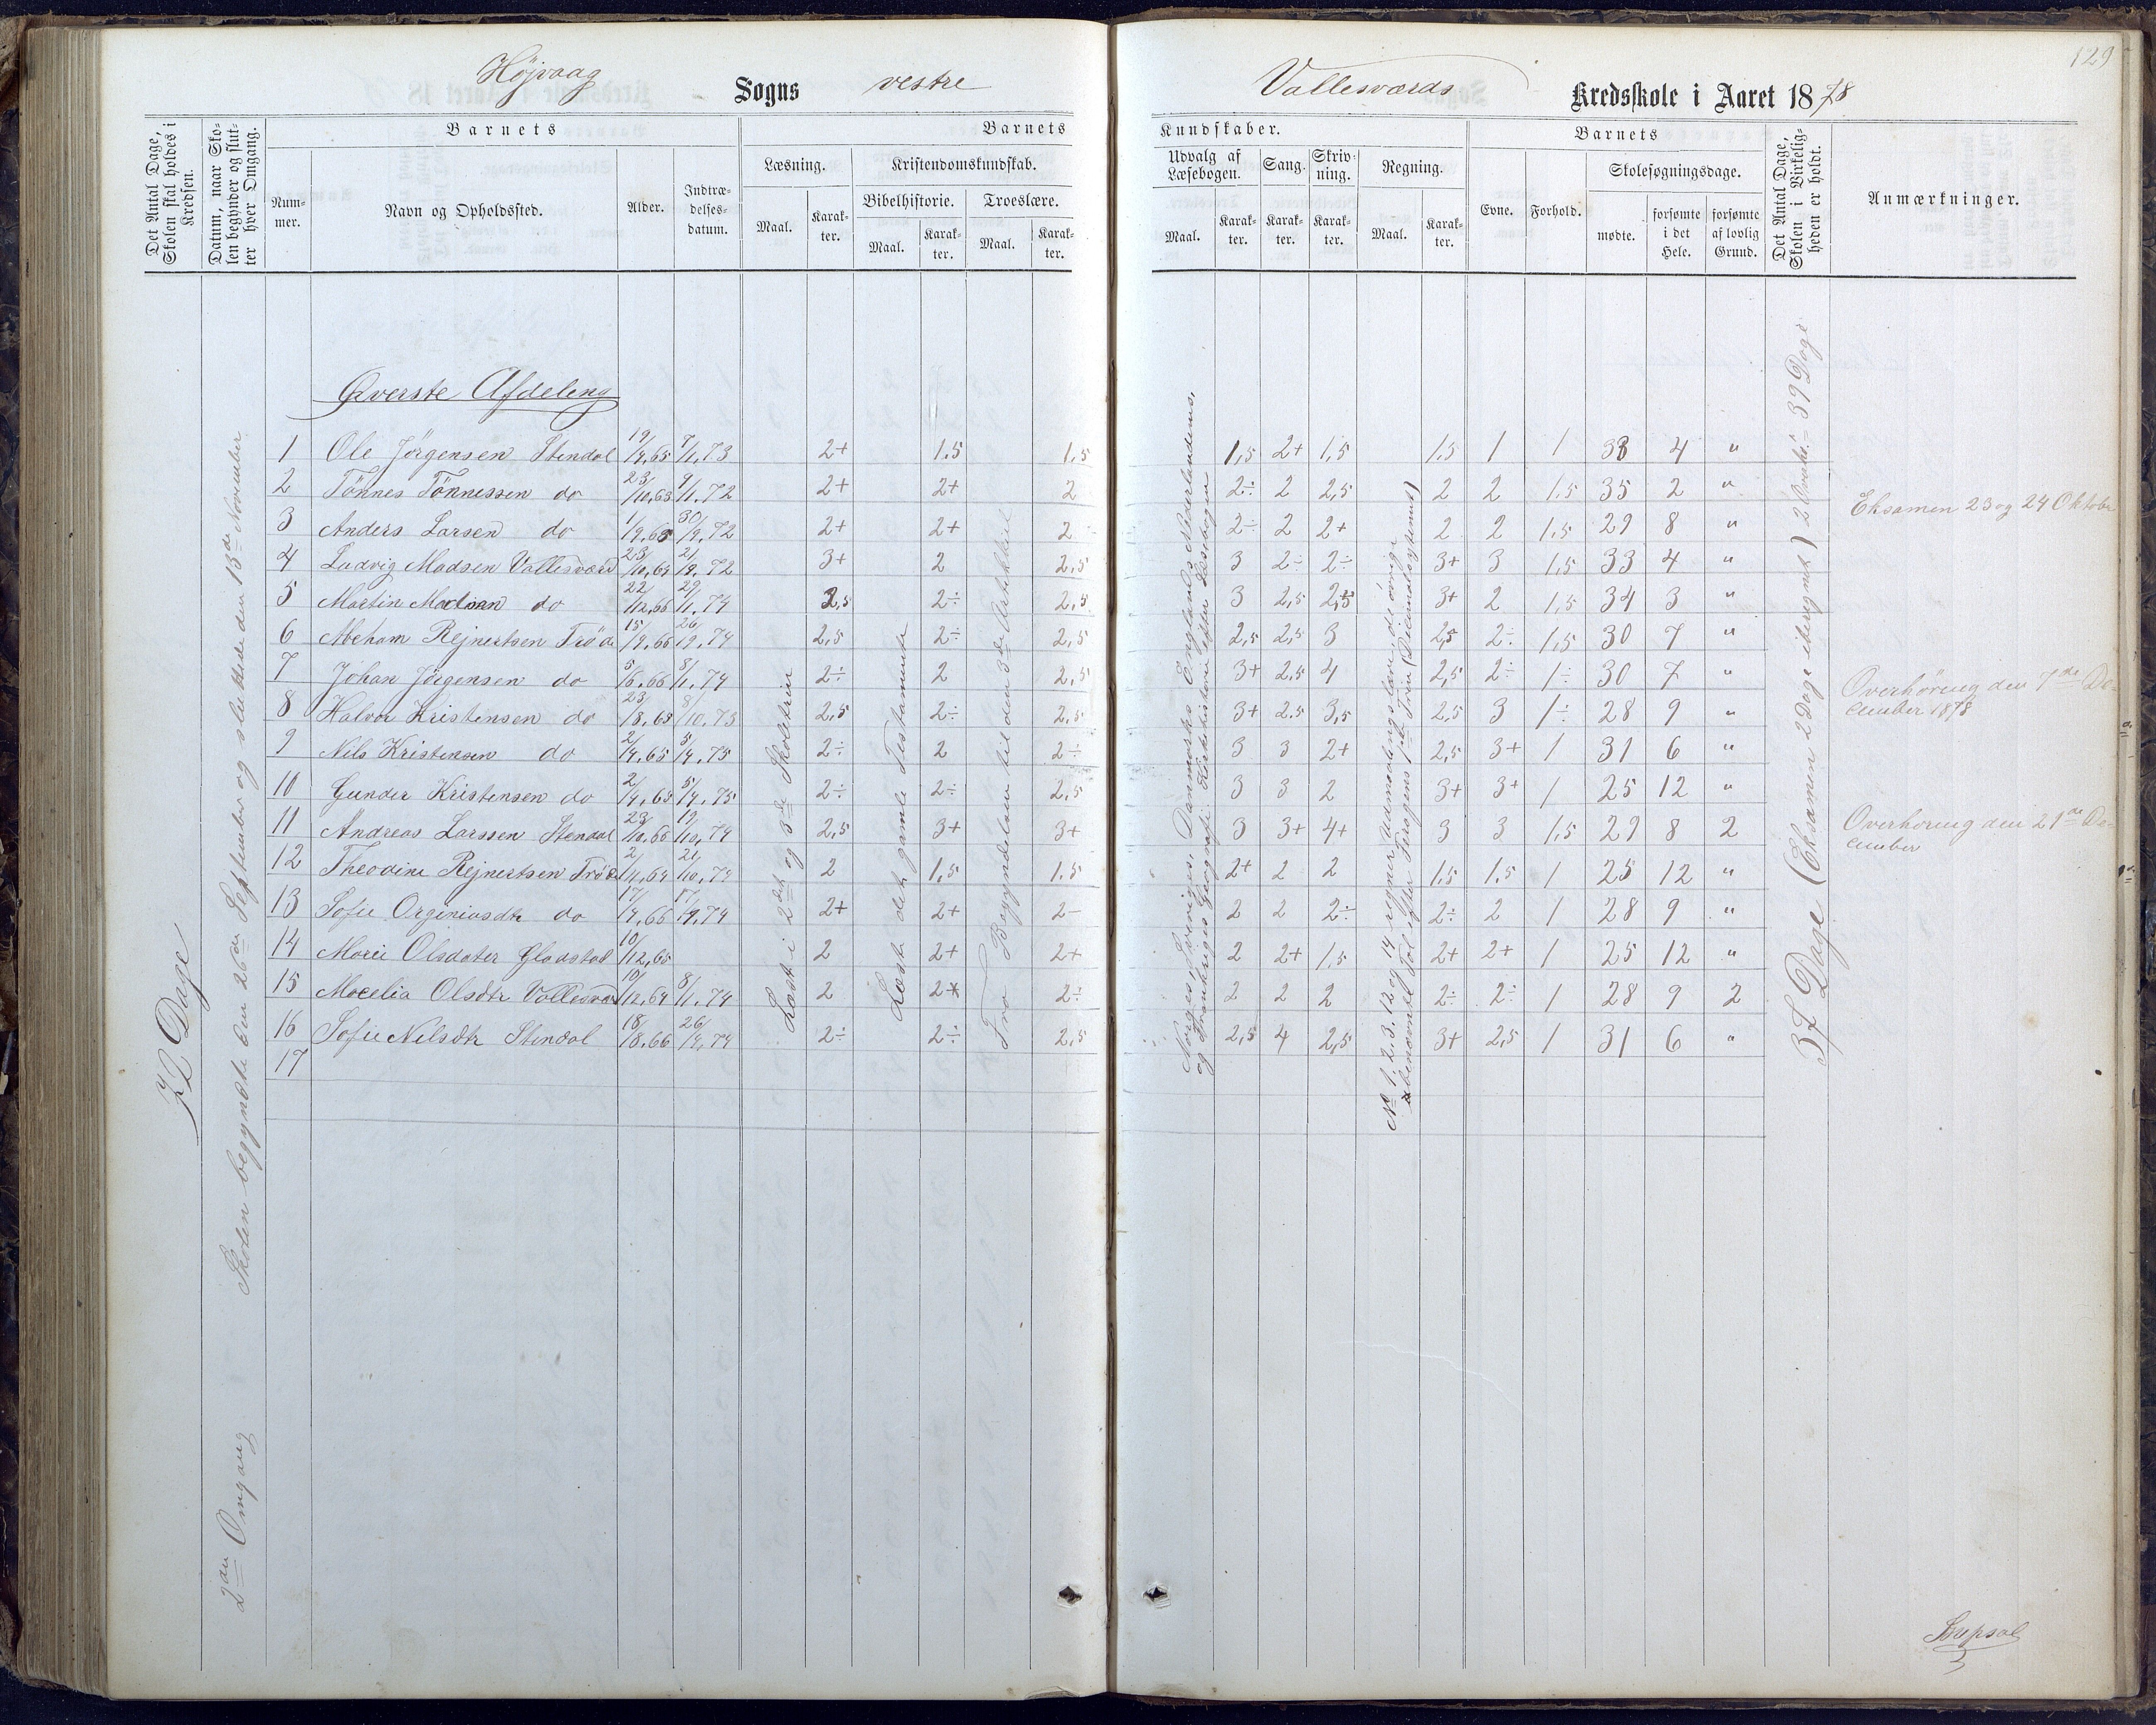 129
Højvaag Sogns vestre Vallesværds Kredsskole i Aaret 1878
Det Antal Dage, Skolen skal holdes i Kredsen.
Datum, naar Skolen begynder og slutter hver Omgang.
Barnets
Nummer.
Navn og Opholdssted.
Alder.
Indtrædelsesdatum.
Barnets Kundskaber.
Læsning.
Maal.
Karakter.
Kristendomskundskab.
Bibelhistorie.
Maal.
Karakter.
Troeslære.
Maal.
Karakter.
Udvalg af Læsebogen.
Maal.
Karakter.
Sang.
Karakter.
Skrivning.
Karakter.
Regning.
Maal.
Karakter.
Barnets
Evne.
Forhold.
Skolesøgningsdage.
mødte.
forsømte i det Hele.
forsømte af lovlig Grund.
Det Antal Dage, Skolen i Virkeligheden er holdt.
Anmærkninger.
Øverste Afdeling
1 Ole Jörgensen Stendal 19/4.65 7/1.73 2+ 1.5 1.5 1,5 2+ 1,5 1.5 1 1 33 4 "
2 Tönnes Tönnessen do 23/10.63 9/1.72 2+ 2+ 2 2÷ 2 2,5 2 2 1.5 35 2 "
3 Anders Larsen do 1/9.65 30/9.72 2+ 2+ 2 2÷ 2 2+ 2 2 1,5 29 8 "
4 Ludvig Madsen Vallesværd 23/10.64 21/9.72 3+ 2 2,5 3 2÷ 2÷ 3+ 3 1,5 33 4 "
5 Martin Madsen do 22/12.66 29/1.74 2,5 2÷ 2,5 3 2,5 2,5 3+ 2 1,5 34 3 "
6 Abeham Rejnertsen Tröde 15/9.66 26/9.74 2,5 2÷ 2,5 2,5 2,5 3 2,5 2÷ 1,5 30 7 "
7 Johan Jörgensen do 5/6.66 8/1.74 2÷ 2 2,5 3+ 2.5 4 2,5 2÷ 1÷ 30 7 "
8 Halvor Kristensen do 23/8.63 8/10.73 2,5 2÷ 2,5 3+ 2.5 3,5 2,5 3 1÷ 28 9 "
9 Nils Kristensen do 2/4.65 5/4.75 2÷ 2 2÷ 3 3 2+ 2,5 3+ 1 31 6 "
10 Gunder Kristensen do 2/4.65 5/4.75 2÷ 2÷ 2,5 3 3 2 3+ 3+ 1 25 12 "
11 Andreas Larssen Stendal 23/10.66 19/10.74 2,5 3+ 3+ 3 3+ 4+ 3 3 1,5 29 8 2
12 Theodine Rejnertsen Tröde 2/4.64 21/10.74 2 1,5 1.5 2+ 2 2 1.5 1.5 1 25 12 "
13 Sofie Orginiusdtr do 17/4.66 17/9.74 2+ 2+ 2- 2 2 2÷ 2÷ 2 1 28 9 "
14 Marie Olsdater Gladstad 10/12.65 2 2+ 2+ 2 2+ 1.5 2+ 2+ 1 25 12 "
15 Olsdtr Vallesværd 10/12.64 8/1.74 2 2+ 2÷ 2 2 2 2÷ 2÷ 1 28 9 2
16 Sofie Nilsdtr Stendal 18/8.66 26/9.74 2÷ 2÷ 2,5 2,5 4 2,5 3+ 2,5 1 31 6 "
17
72 Dage
2den Omgang
Skolen begyndte den 26de September og sluttede den 13de November
Læst i 2det og 3de Skoletrin
Læst det gamle Testamente
Fra Begyndelsen til den 3de Artikkel
Norges, Sveriges, Danmarks Englands Nederlandenes,
og Frankriges Geografi. Kirkehistorie efter Læsebogen
No 1. 2. 3. 12 og 14 regner Udmaalingslære, de övrige
ubenævnte Tal efter Trogens 1ste Trin (Decimalsystemet)
37 Dage (Eksamen 2 Dage iberegnet) 2 Overhr. = 39 Dage
Eksamen 23 og 24 Oktober
Overhöring den 7de De-
cember 1878
Overhöring den 21de De-
cember